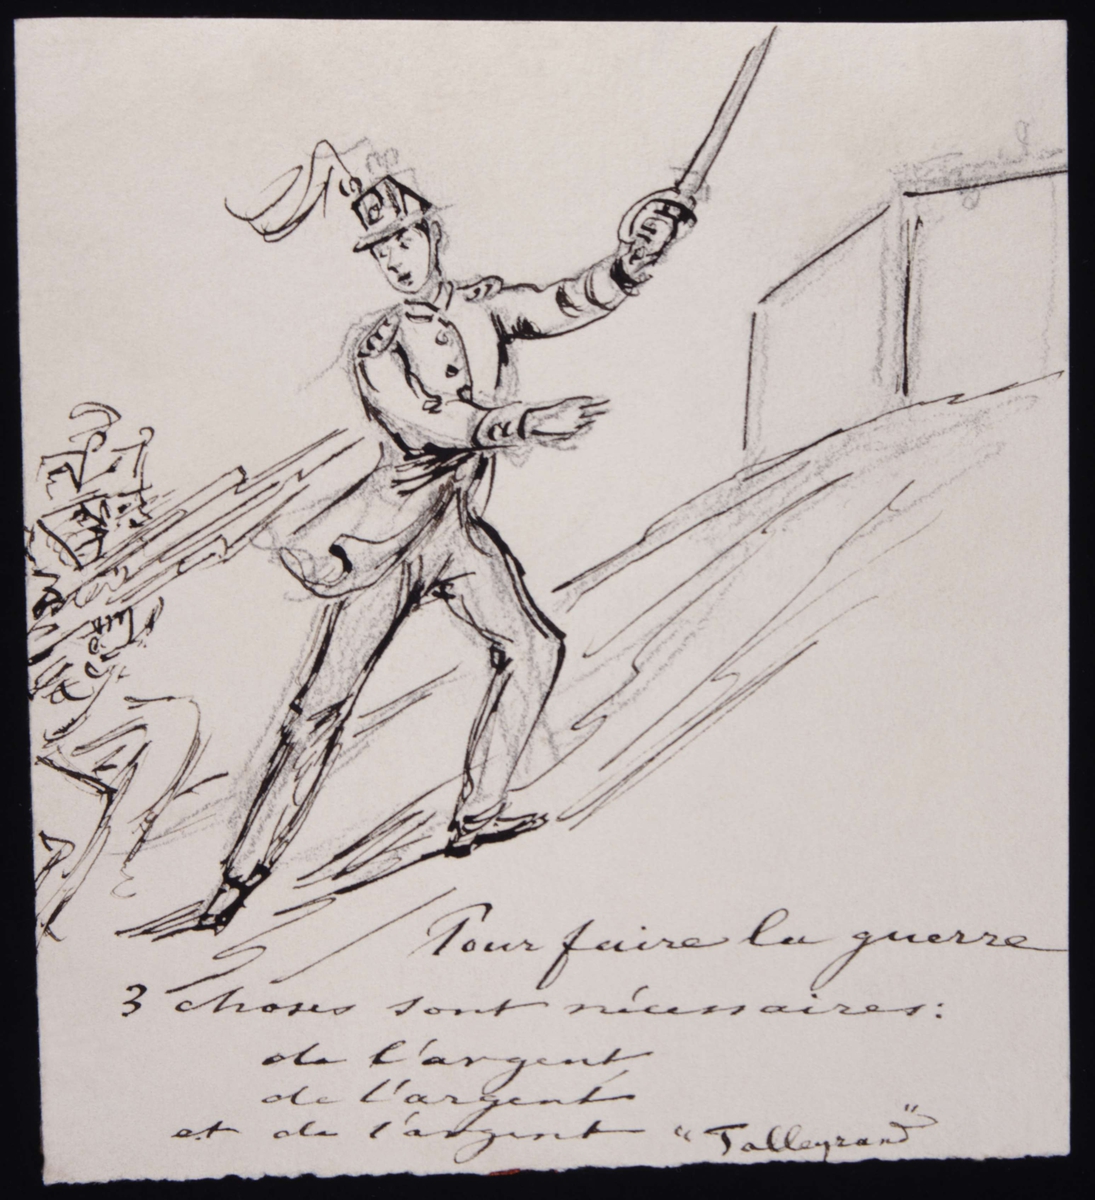 Pour faire la guerre
3 choses sont nécessaires:
de l'argent
de l'argent
et de l'argent "Talleyrand"